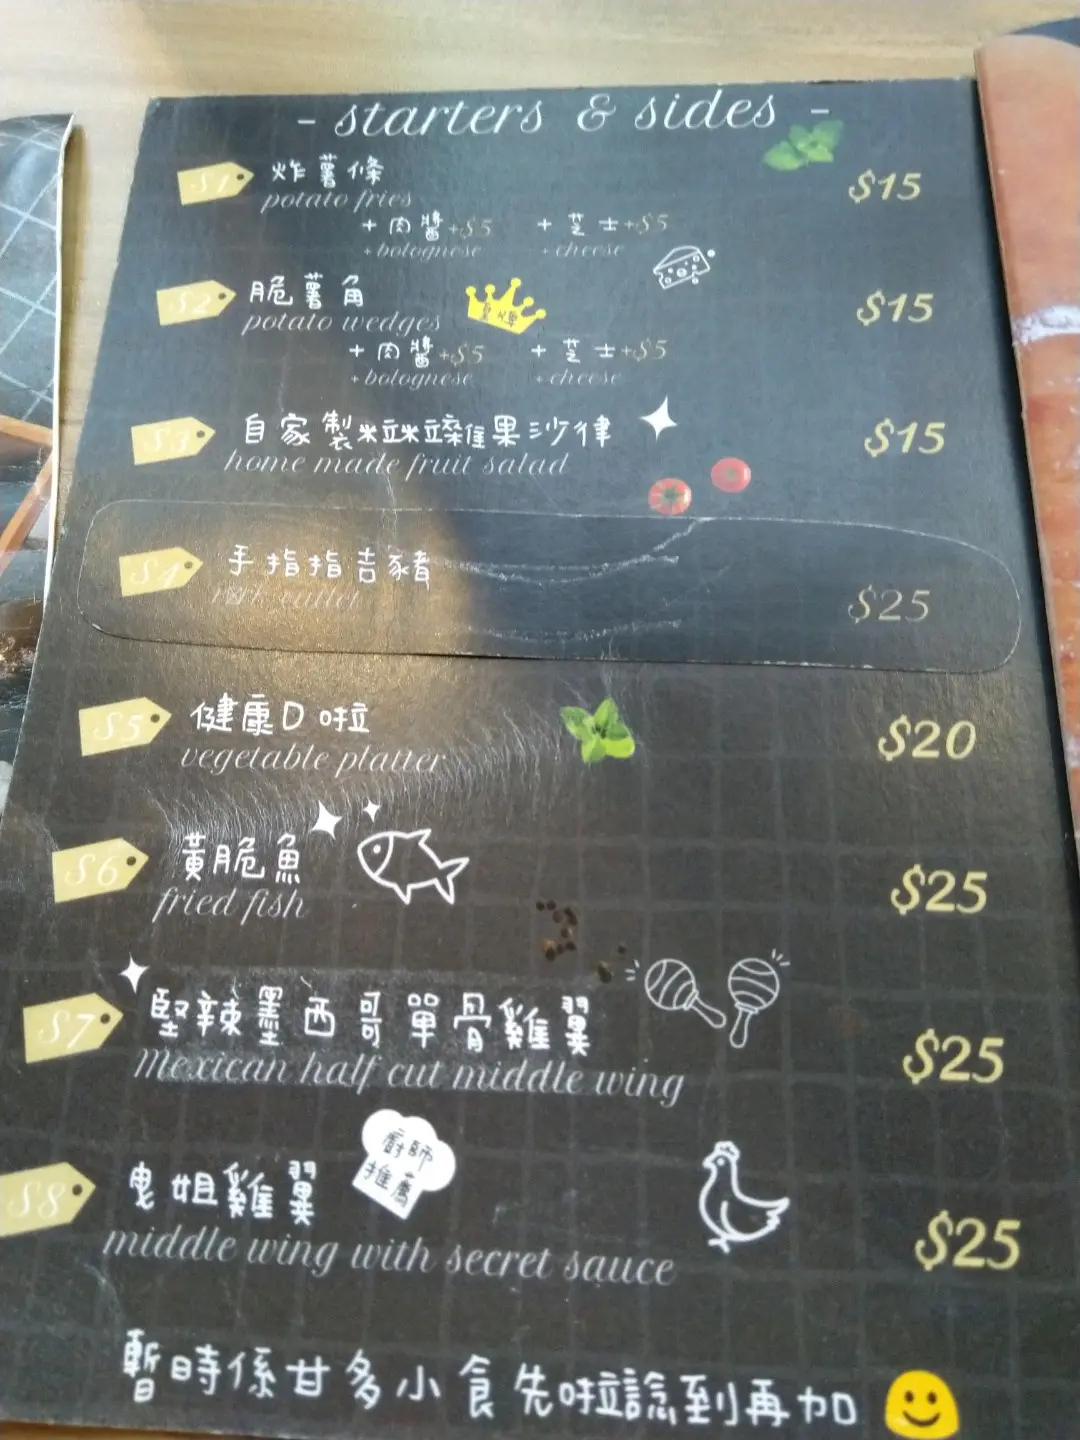 - starters & sides -
S1 炸薯條 $15
potato fries
+ 肉醬 +$5 + 芝士 +$5
+ bolognese + cheese
S2 脆薯角 $15
potato wedges
+ 肉醬 +$5 + 芝士 +$5
+ bolognese + cheese
S3 自家製 雜果沙律 $15
home made fruit salad
S4 手指指吉豬 $25
cutlet
S5 健康D啦 $20
vegetable platter
S6 黃脆魚 $25
fried fish
S7 堅辣墨西哥單骨雞翼 $25
Mexican half cut middle wing
廚師
推薦
S8 曳姐雞翼 $25
middle wing with secret sauce
暫時係甘多小食先啦諗到再加